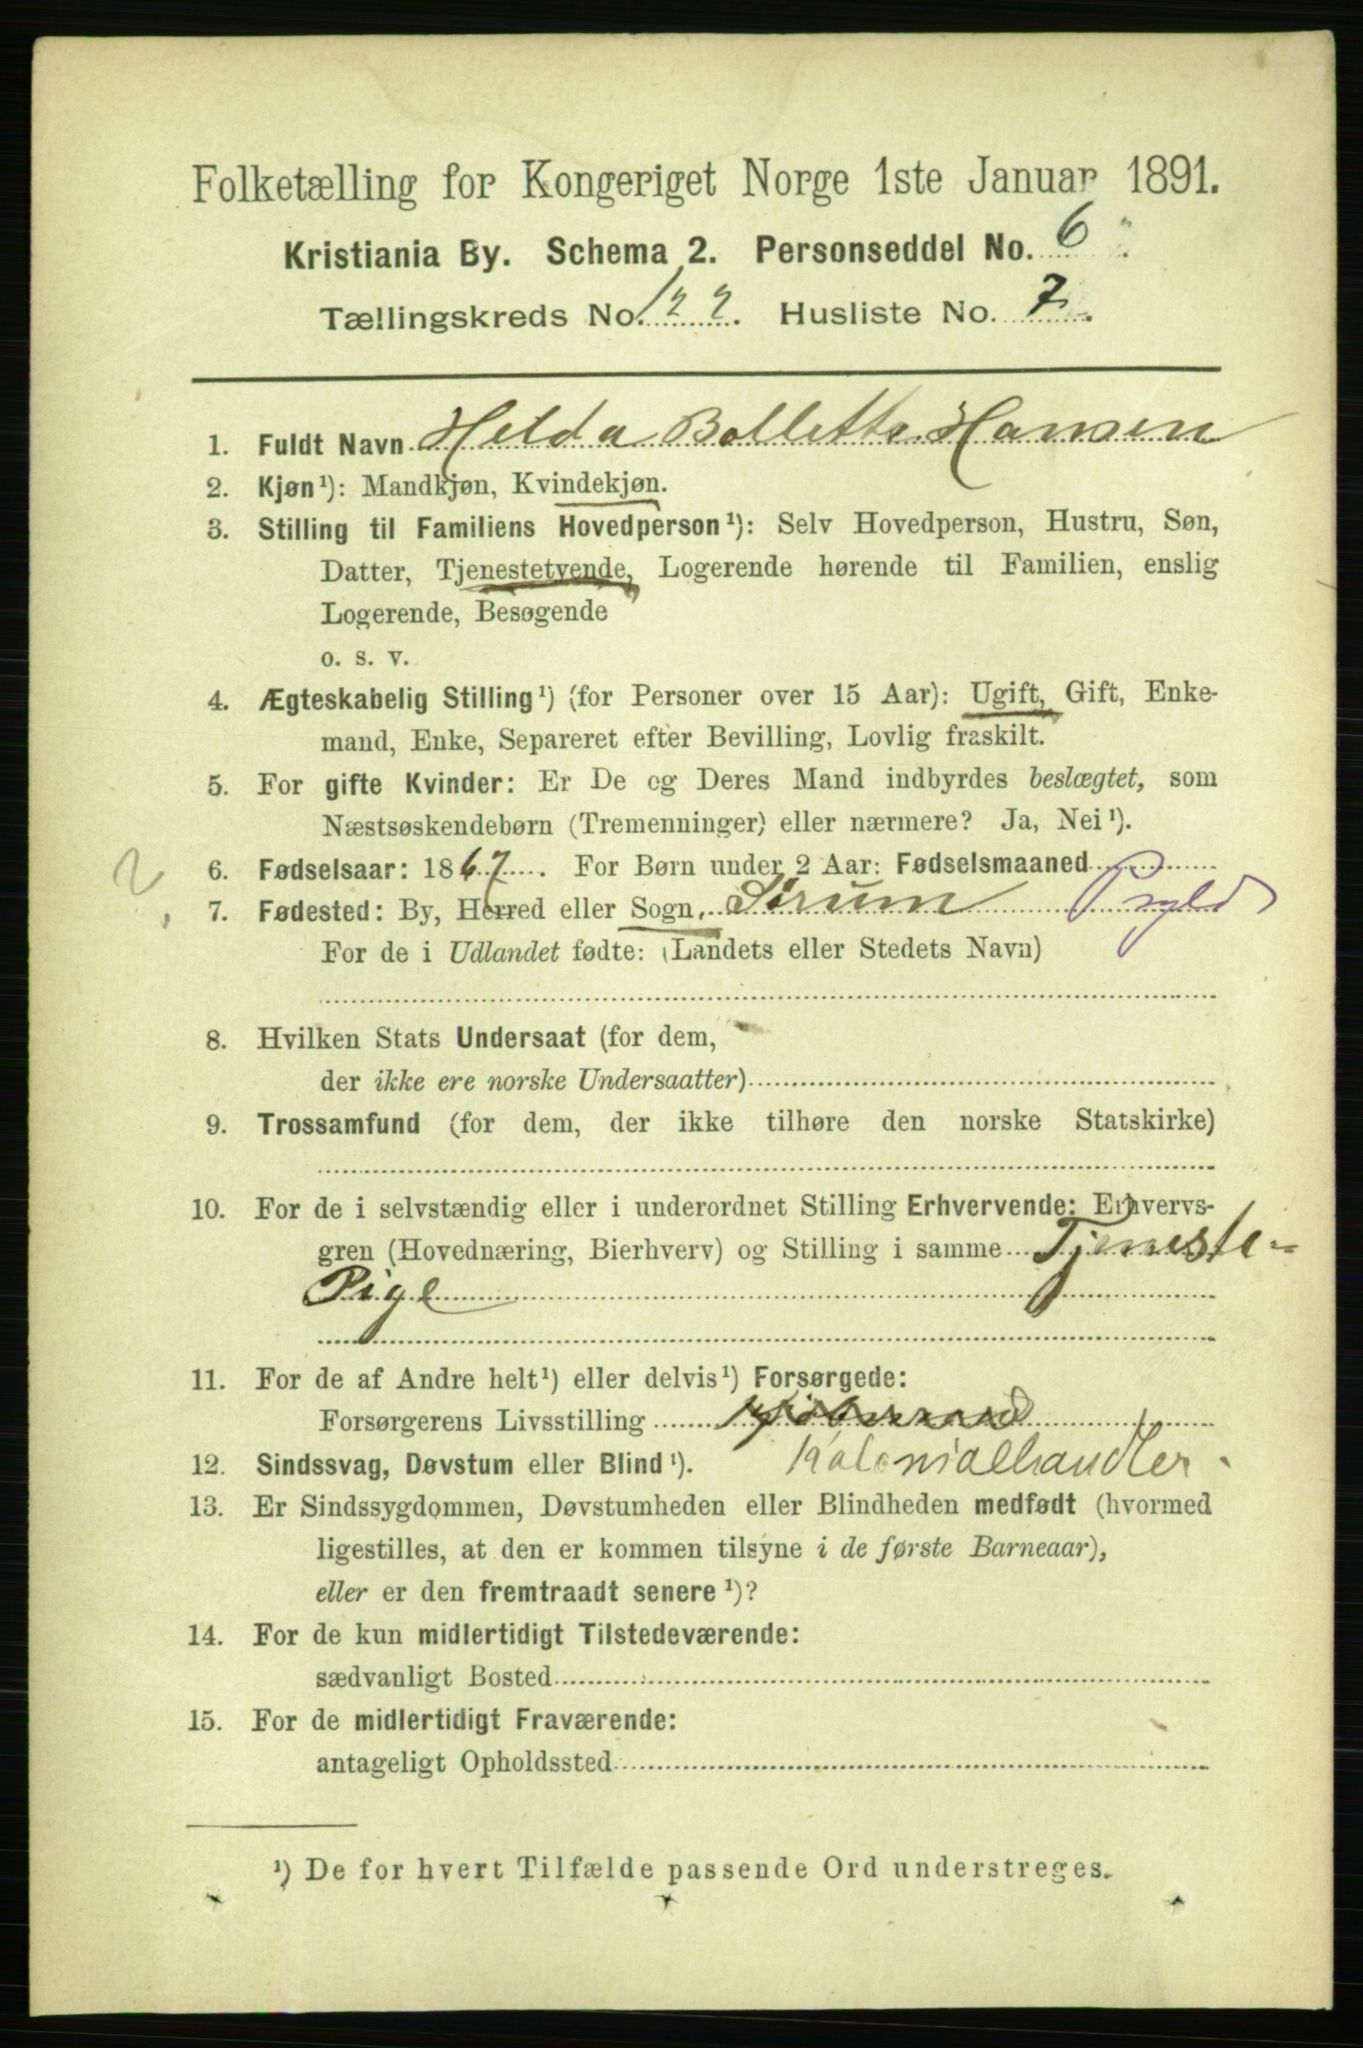 Folketælling for Kongeriget Norge 1ste Januar 1891.
Kristiania By. Schema 2. Personseddel No. 6
Tællingskreds No. 122. Husliste No. 7.
1. Fuldt Navn Helda Bollette Hansen
2. Kjøn¹): Mandkjøn, Kvindekjøn.
3. Stilling til Familiens Hovedperson¹): Selv Hovedperson, Hustru, Søn,
Datter, Tjenestetyende, Logerende hørende til Familien, enslig
Logerende, Besøgende
o. s. v.
4. Ægteskabelig Stilling¹) (for Personer over 15 Aar): Ugift, Gift, Enke-
mand, Enke, Separeret efter Bevilling, Lovlig fraskilt.
5. For gifte Kvinder: Er De og Deres Mand indbyrdes beslægtet, som
Næstsøskendebørn (Tremenninger) eller nærmere? Ja, Nei¹).
2.
6. Fødselsaar: 1867. For Børn under 2 Aar: Fødselsmaaned
7. Fødested: By, Herred eller Sogn, Sørum
For de i Udlandet fødte: (Landets eller Stedets Navn)
8. Hvilken Stats Undersaat (for dem,
der ikke ere norske Undersaatter)
9. Trossamfund (for dem, der ikke tilhøre den norske Statskirke)
10. For de i selvstændig eller i underordnet Stilling Erhvervende: Erhvervs-
gren (Hovednæring, Bierhverv) og Stilling i samme Tjeneste-
Pige
11. For de af Andre helt¹) eller delvis¹) Forsørgede:
Forsørgerens Livsstilling
12. Sindssvag, Døvstum eller Blind¹). Kolonialhandler.
13. Er Sindssygdommen, Døvstumheden eller Blindheden medfødt (hvormed
ligestilles, at den er kommen tilsyne i de første Barneaar),
eller er den fremtraadt senere¹)?
14. For de kun midlertidigt Tilstedeværende:
sædvanligt Bosted
15. For de midlertidigt Fraværende:
antageligt Opholdssted
¹) De for hvert Tilfælde passende Ord understreges.